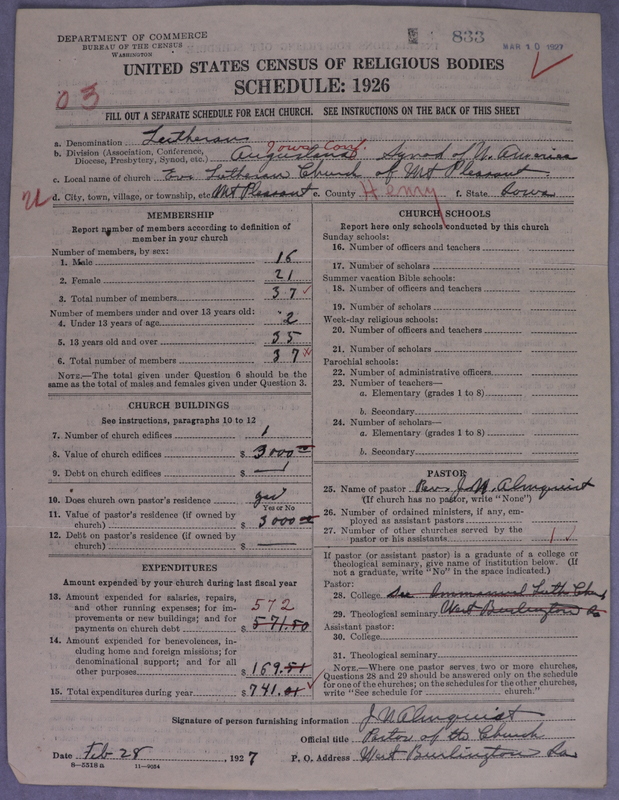 DEPARTMENT OF COMMERCE
BUREAU OF THE CENSUS
WASHINGTON
833
MAR 10 1927
UNITED STATES CENSUS OF RELIGIOUS BODIES
SCHEDULE: 1926
03
FILL OUT A SEPARATE SCHEDULE FOR EACH CHURCH. SEE INSTRUCTIONS ON THE BACK OF THIS SHEET
a. Denomination Lutheran
b. Division (Association, Conference, Diocese, Presbytery, Synod, etc.) Augustana Iowa Conf. Synod of N. America
c. Local name of church Ev. Lutheran Church of Mt Pleasant
d. City, town, village, or township, etc. Mt Pleasant e. County Henry f. State Iowa
MEMBERSHIP
Report number of members according to definition of member in your church
Number of members, by sex:
1. Male 16
2. Female 21
3. Total number of members 37
Number of members under and over 13 years old:
4. Under 13 years of age 2
5. 13 years old and over 35
6. Total number of members 37
NOTE.—The total given under Question 6 should be the same as the total of males and females given under Question 3.
CHURCH BUILDINGS
See instructions, paragraphs 10 to 12
7. Number of church edifices 1
8. Value of church edifices $ 3000.00
9. Debt on church edifices $ —
10. Does church own pastor's residence yes
Yes or No
11. Value of pastor's residence (if owned by church) $ 3000.00
12. Debt on pastor's residence (if owned by church) $ —
EXPENDITURES
Amount expended by your church during last fiscal year
13. Amount expended for salaries, repairs, and other running expenses; for improvements or new buildings; and for payments on church debt $ 572 571.50
14. Amount expended for benevolences, including home and foreign missions; for denominational support; and for all other purposes $ 169.51
15. Total expenditures during year $ 741.01
CHURCH SCHOOLS
Report here only schools conducted by this church
Sunday schools:
16. Number of officers and teachers
17. Number of scholars
Summer vacation Bible schools:
18. Number of officers and teachers
19. Number of scholars
Week-day religious schools:
20. Number of officers and teachers
21. Number of scholars
Parochial schools:
22. Number of administrative officers
23. Number of teachers—
a. Elementary (grades 1 to 8)
b. Secondary
24. Number of scholars—
a. Elementary (grades 1 to 8)
b. Secondary
PASTOR
25. Name of pastor Rev. J. N. Almquist
(If church has no pastor, write "None")
26. Number of ordained ministers, if any, employed as assistant pastors
27. Number of other churches served by the pastor or his assistants 1
If pastor (or assistant pastor) is a graduate of a college or theological seminary, give name of institution below. (If not a graduate, write "No" in the space indicated.)
Pastor:
28. College See Immanuel Luth Church
29. Theological seminary West Burlington Ia
Assistant pastor:
30. College
31. Theological seminary
NOTE.—Where one pastor serves two or more churches, Questions 28 and 29 should be answered only on the schedule for one of the churches; on the schedules for the other churches, write "See schedule for church."
Signature of person furnishing information J N Almquist
Official title Pastor of the Church
Date Feb 28, 1927 P. O. Address West Burlington Ia
8—5518 a 11—9034